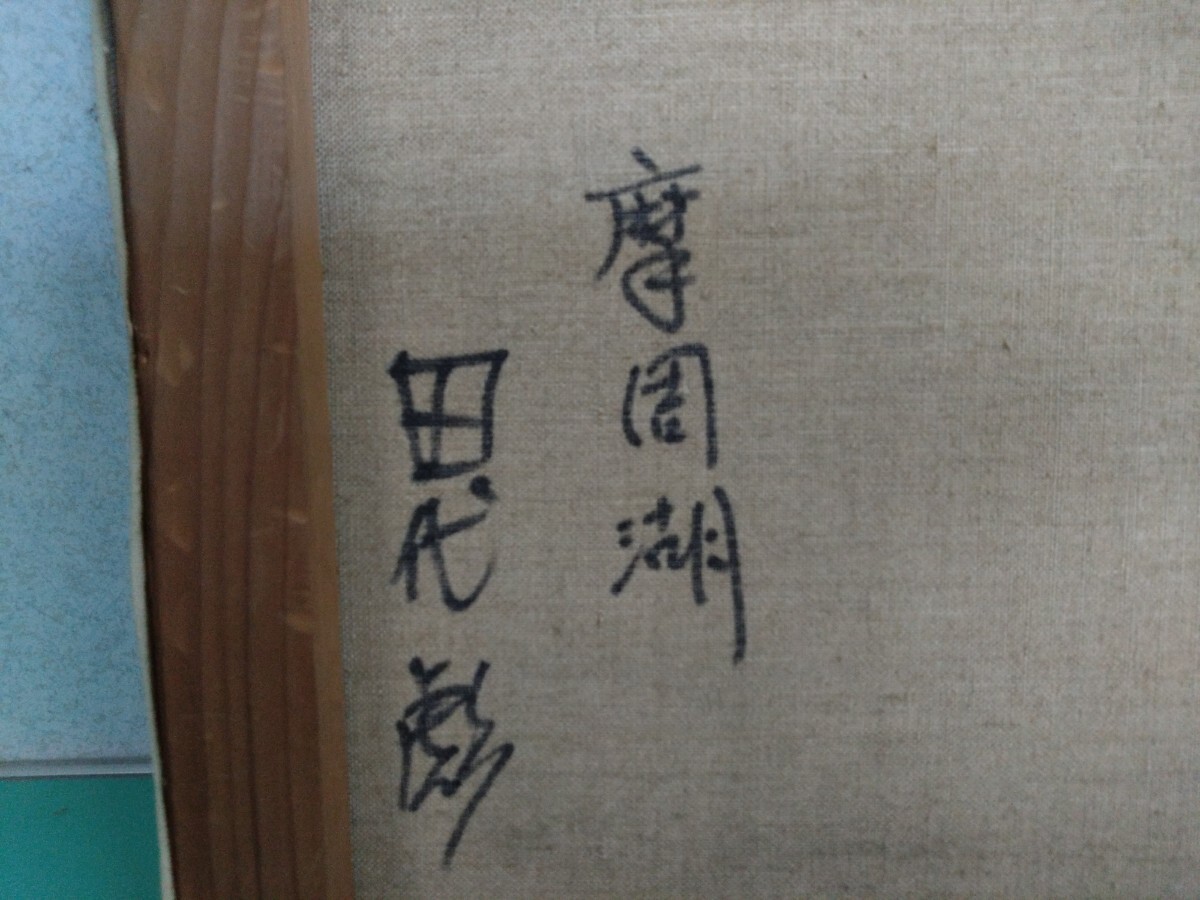 摩周湖
田代